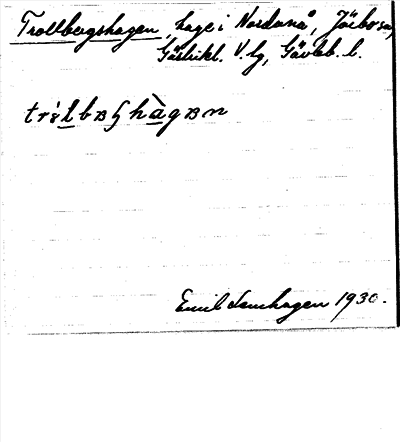 Trollbergshagen, hage i Nordanå, Järbo sn,
Gästrikl. V. tg, Gävleb. l.
trɵ̀lbæʂhàgæn
Emil Lemhagen 1930.